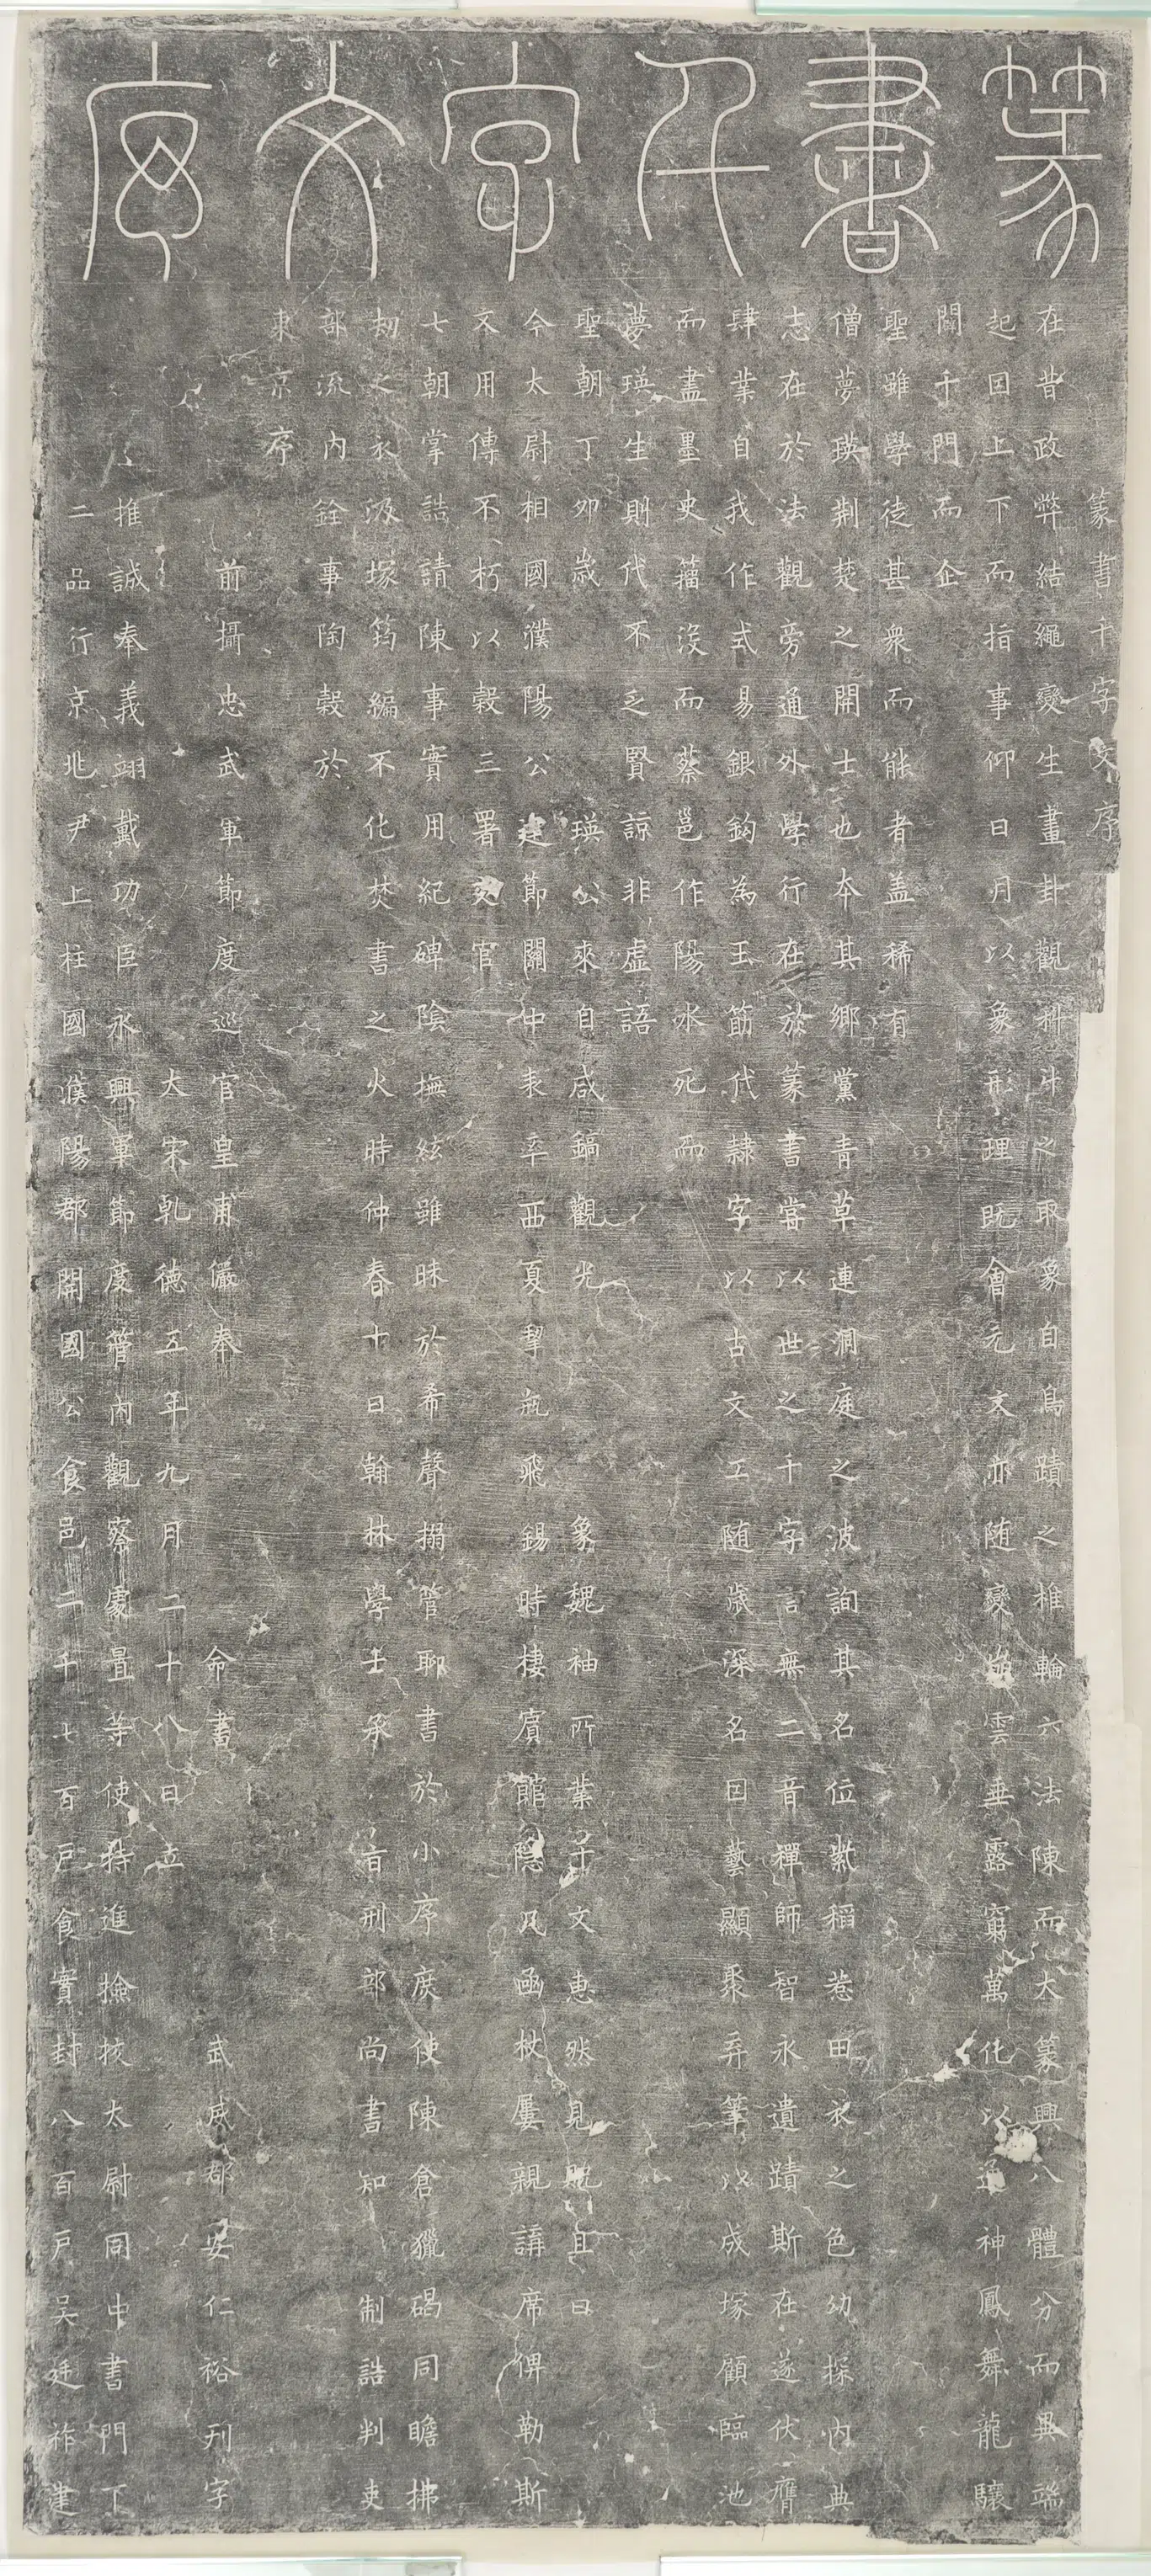 篆書千字文序
篆書千字文序
在昔政弊結繩變生畫卦觀科斗之取象自鳥蹟之椎輪六法陳而大篆興八體分而異端
起因上下而指事仰日月以象形理既會元文亦随變崩雲垂露窮萬化以通神鳳舞龍驤
闢千門而企
聖雖學徒甚衆而能者盖稀有
僧夢瑛荆楚之開士也本其鄉黨青草連洞庭之波詢其名位紫稻惹田衣之色幼探内典
志在於法觀旁通外學行在於篆書嘗以世之千字言無二音禪師智永遺蹟斯在遂伏膺
肆業自我作式易銀鈎為玉筯代隸字以古文工随歲深名因藝顯聚弃筆以成塚顧臨池
而盡墨史籀没而蔡邕作陽冰死而
夢瑛生則代不乏賢諒非虛語
聖朝丁夘歲瑛公來自咸鎬觀光 象魏袖所業千文惠然見貺且曰
今太尉相國濮陽公建節關中表率西夏挈瓶飛錫時棲賓館隐几函杖屢親講席俾勒斯
文用傳不朽以穀三署史官
七朝掌誥請陳事實用紀碑陰撫絃雖昧於希聲搦管聊書於小序庶使陳倉獵碣同瞻拂
刼之衣汲塚筠編不化焚書之火時仲春十日翰林學士承旨刑部尚書知制誥判吏
部流内銓事陶穀於
東京序
前攝忠武軍節度巡官皇甫儼奉 命書 武威郡安仁裕刊字
大宋乹德五年九月二十八日立
推誠奉義翊戴功臣永興軍節度管内觀察處置等使特進撿挍太尉同中書門下
二品行京兆尹上柱國濮陽郡開國公食邑二千七百戶食實封八百戶吴廷祚建